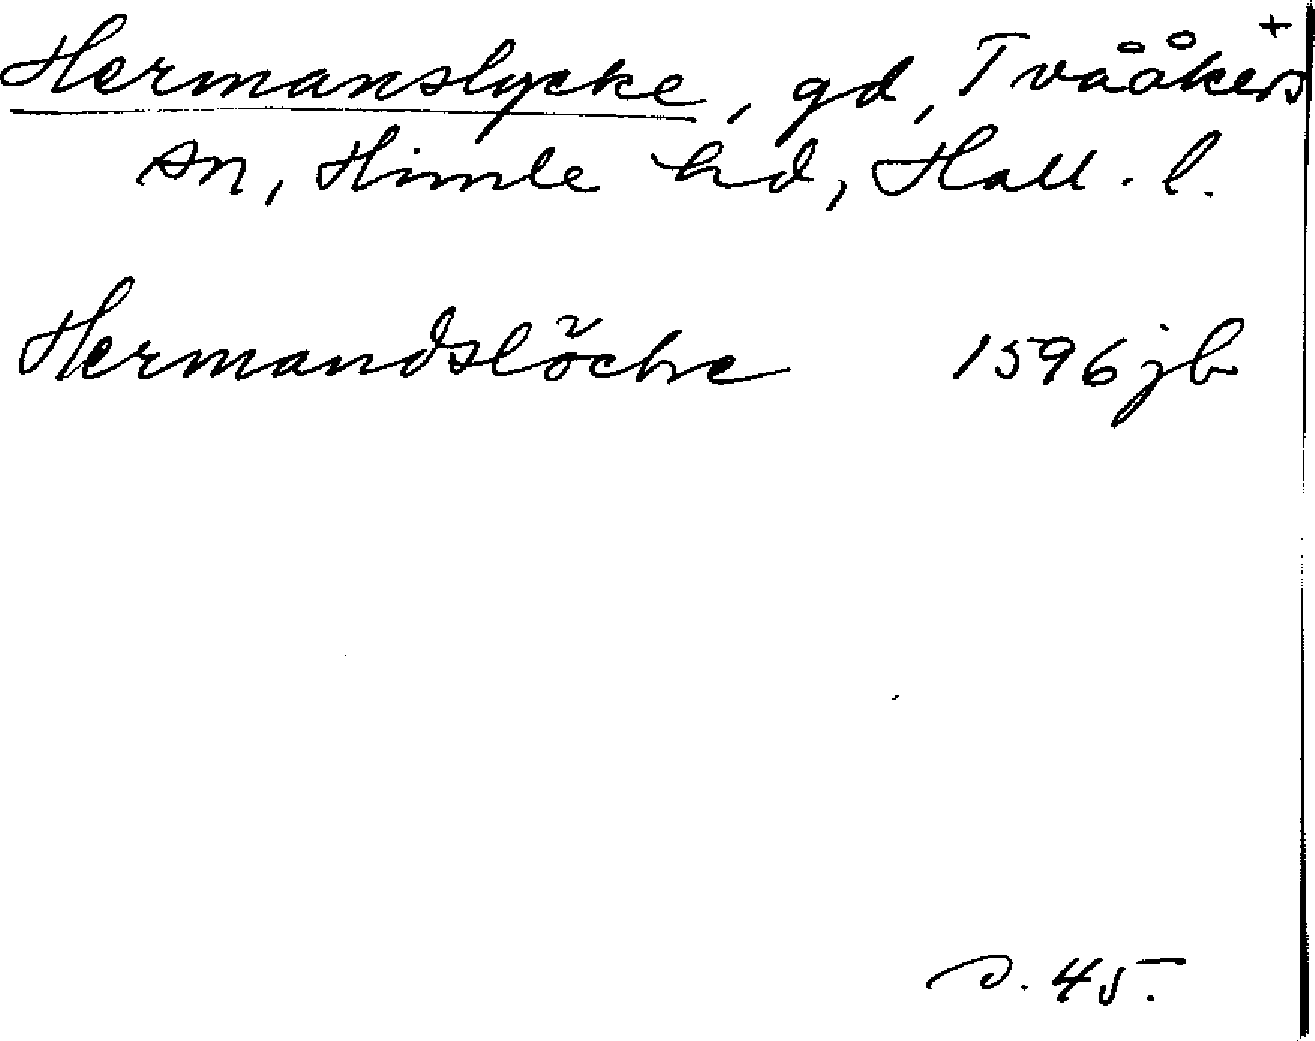 Hermanslycke, gd, Tvååkers +
sn, Himle hd, Hall. l.
Hermandslöche 1596 jb
s. 45.